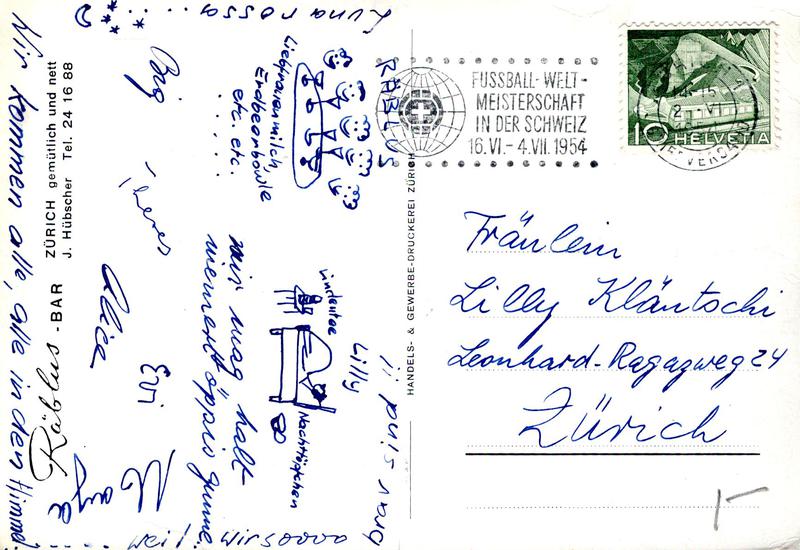 Luna rossa ......
Räblus
Liebfrauenmilch,
Erdbeerbowle
etc. etc.
. . . . .
Lindentee
Lilly
Nachttöpfchen
mir mag halt
niemert öppis gunne
Alice
Evi
Wir kommen alle, alle in den Himmel
weil wir soooo
brav sind !!
ZÜRICH gemütlich und nett
J. Hübscher Tel. 24 16 88
Räblus - BAR
HANDELS- & GEWERBE-DRUCKEREI ZÜRICH
FUSSBALL-WELT-
MEISTERSCHAFT
IN DER SCHWEIZ
16.VI.-4.VII.1954
10 HELVETIA
Fräulein
Lilly Kläntschi
Leonhard-Ragazweg 24
Zürich